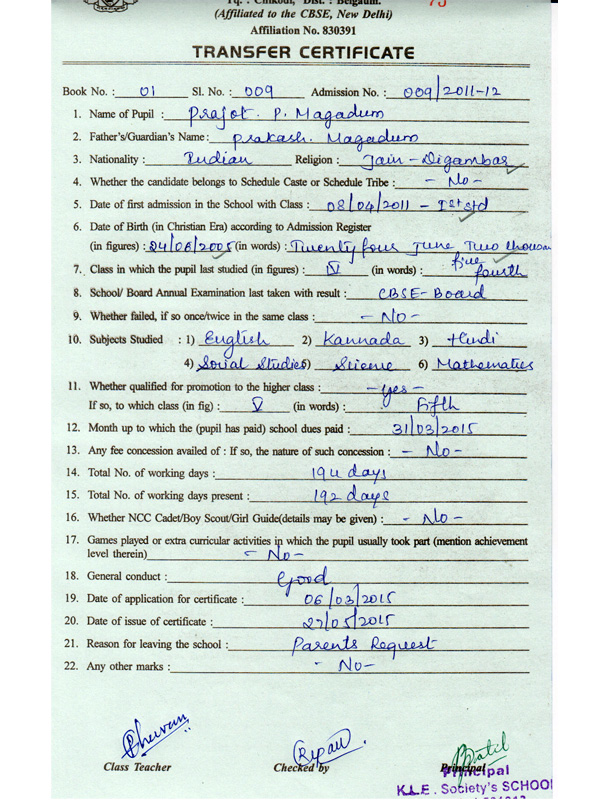 Tq. : Chikodi, Dist. : Belgaum. 75
(Affiliated to the CBSE, New Delhi)
Affiliation No. 830391
TRANSFER CERTIFICATE
Book No. : 01 Sl. No. : 009 Admission No. : 009/2011-12
1. Name of Pupil : Prajot. P. Magadum
2. Father's/Guardian's Name : Prakash. Magadum
3. Nationality : Indian Religion : Jain - Digambar
4. Whether the candidate belongs to Schedule Caste or Schedule Tribe : - No -
5. Date of first admission in the School with Class : 08/04/2011 - Ist std
6. Date of Birth (in Christian Era) according to Admission Register
(in figures) : 24/06/2005 (in words) : Twentyfour June Two thousan
five
7. Class in which the pupil last studied (in figures) : IV (in words) : fourth
8. School/ Board Annual Examination last taken with result : CBSE-Board
9. Whether failed, if so once/twice in the same class : - No -
10. Subjects Studied : 1) English 2) Kannada 3) Hindi
4) Social Studies 5) Science 6) Mathematics
11. Whether qualified for promotion to the higher class : - yes -
If so, to which class (in fig) : V (in words) : Fifth
12. Month up to which the (pupil has paid) school dues paid : 31/03/2015
13. Any fee concession availed of : If so, the nature of such concession : - No -
14. Total No. of working days : 194 days
15. Total No. of working days present : 192 days
16. Whether NCC Cadet/Boy Scout/Girl Guide(details may be given) : - No -
17. Games played or extra curricular activities in which the pupil usually took part (mention achievement
level therein) - No -
18. General conduct : Good
19. Date of application for certificate : 06/03/2015
20. Date of issue of certificate : 27/05/2015
21. Reason for leaving the school : Parents Request
22. Any other marks : - No -
Class Teacher Checked by Principal
Principal
K.L.E. Society's SCHOOL